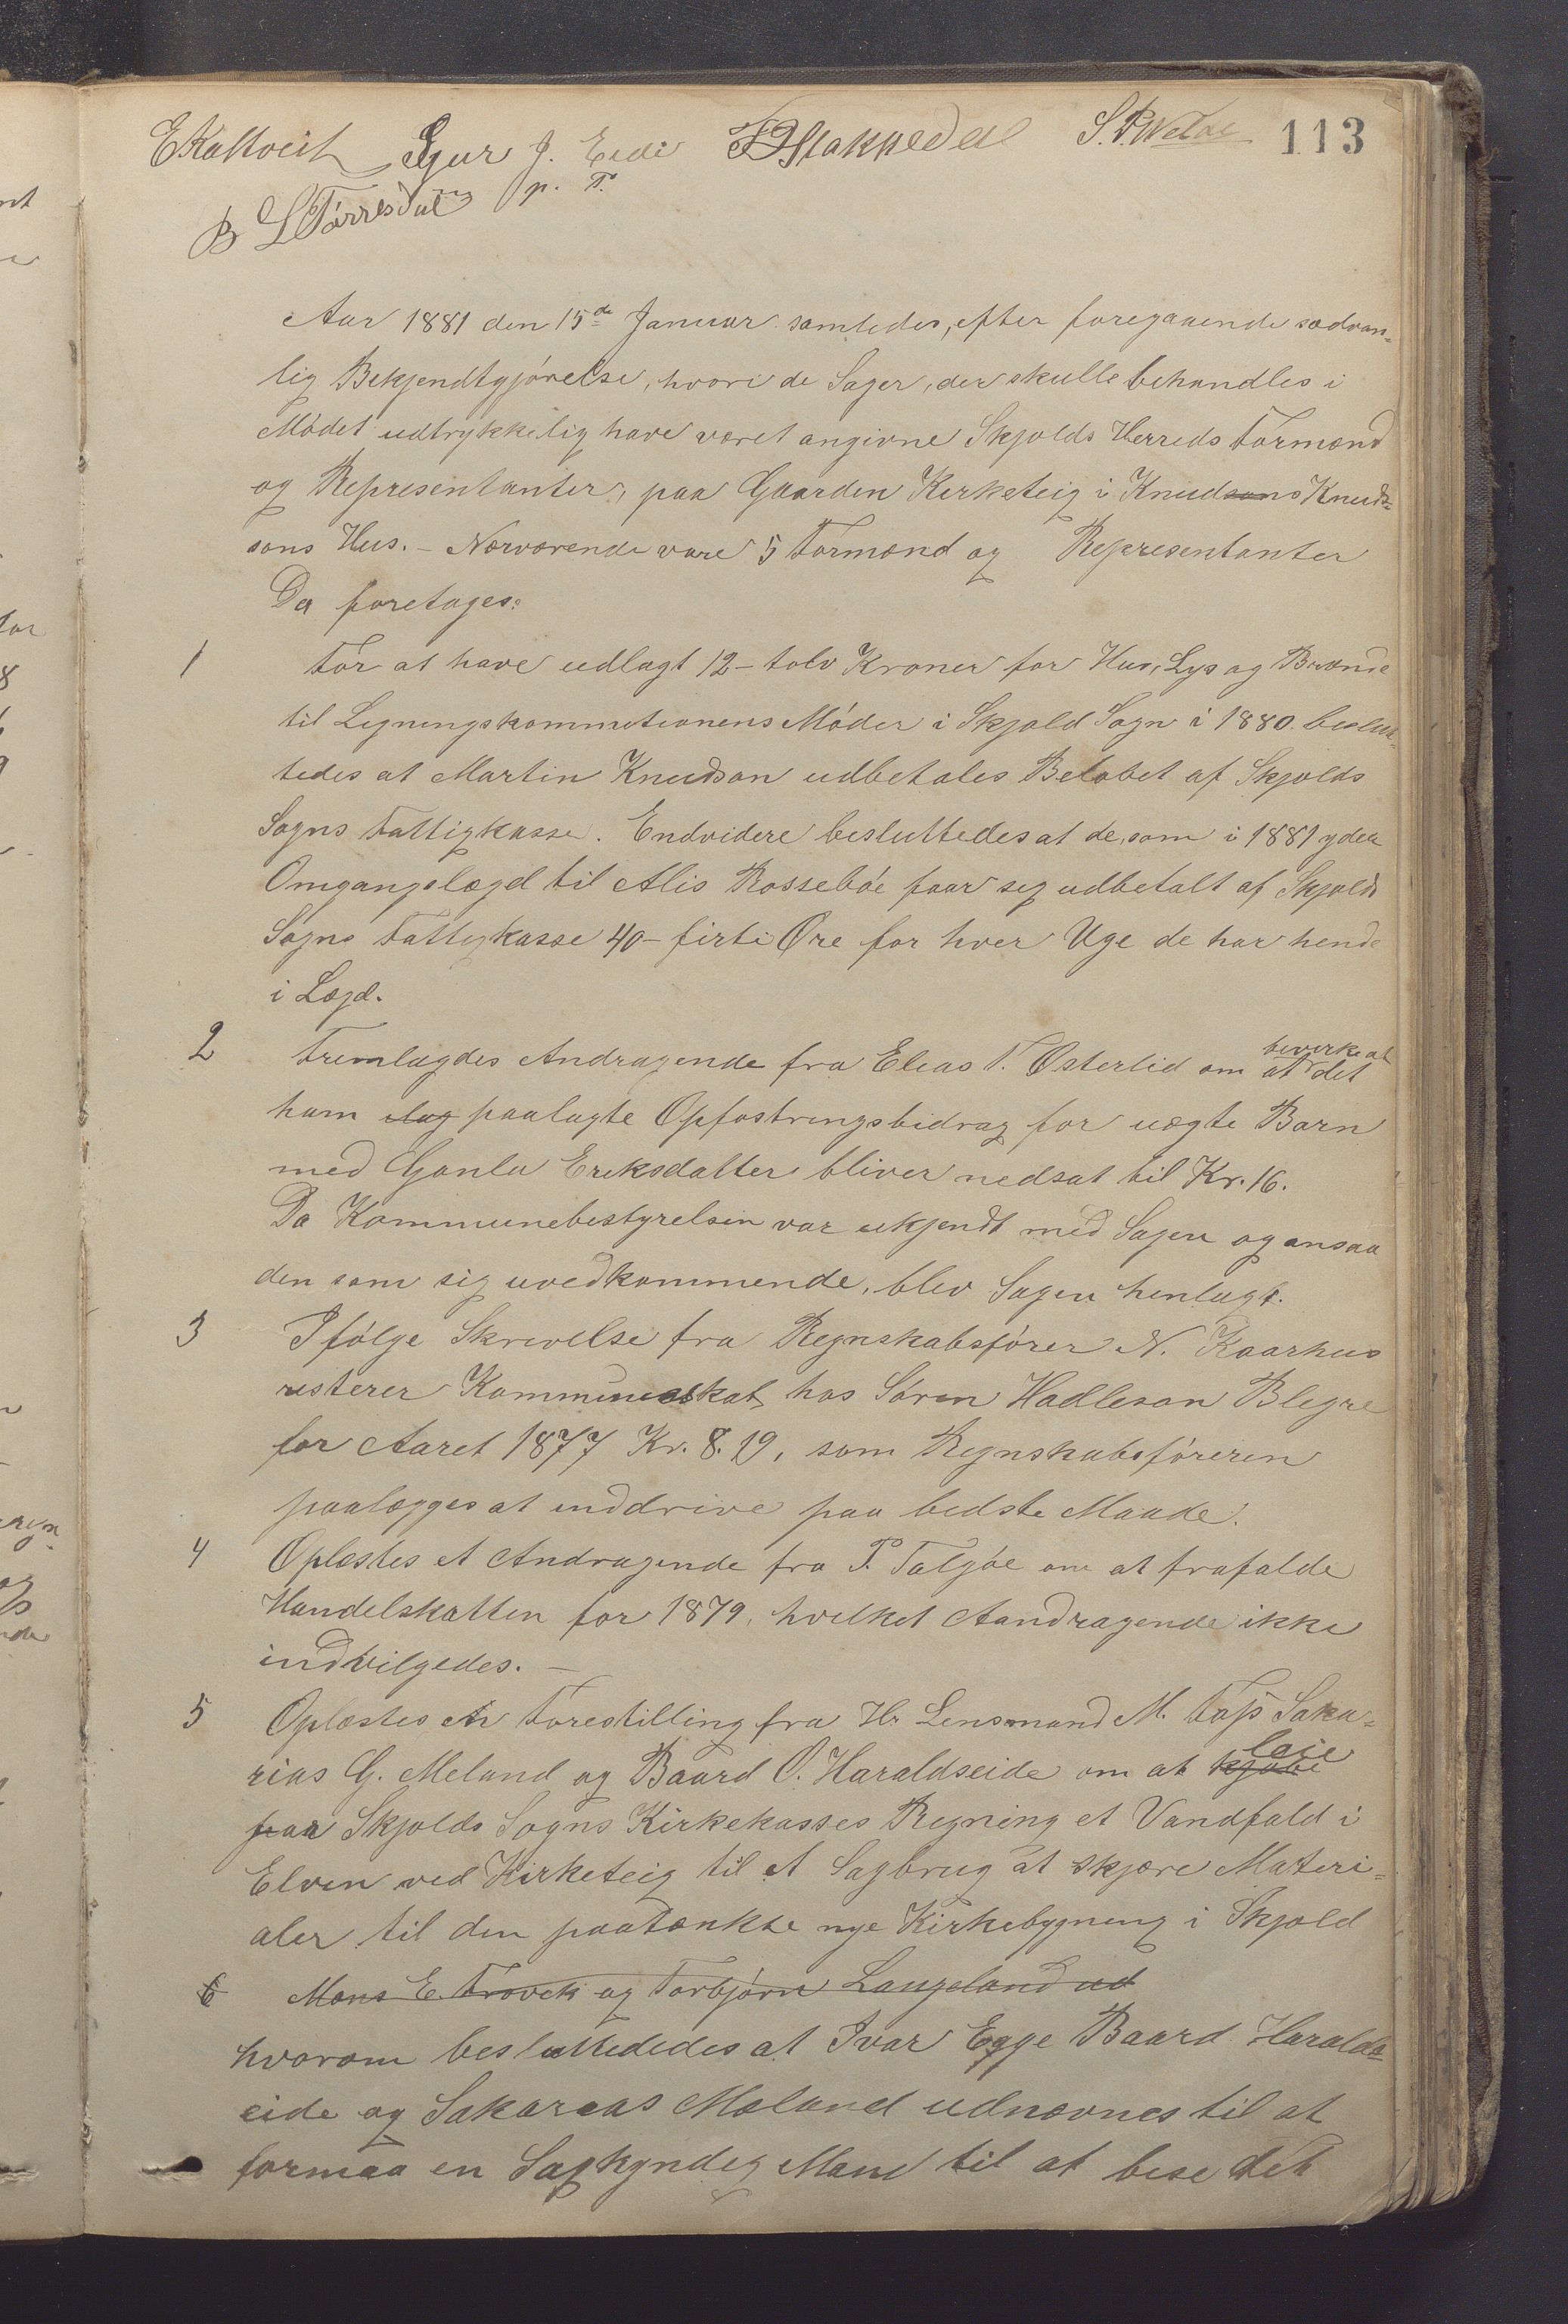 E Kaltveit Sjur J. Eide T D Stakkedal S. P. Welde 113
p. T.
B L Tørresdal
Aar 1881 den 15de Januar samledes, efter foregaaende sædvan-
lig Bekjendtgjørelse, hvori de Sager, der skulle behandles i
Mødet udtrykkelig have været angivne Skjolds Herreds Formænd
og Representanter, paa Gaarden Kirketeig i Knudsons Knud-
sons Hus. – Nærværende vare 5 Formænd og Representanter
Da foretages:
1 For at have udlagt 12 – tolv Kroner for Hus, Lys og Brænde
til Ligningskommitionens Møder i Skjold Sogn i 1880 beslut-
tedes at Martin Knudson udbetales Beløbet af Skjolds
Sogns Fattigkasse. Endvidere besluttedes at de, som i 1881 yder
Omgangslægd til Alis Rossebøe faar sig udbetalt af Skjolds
Sogns Fattigkasse 40 – firti Øre for hver Uge de har hende
i Lægd.
2 Fremlagdes Andragende fra Elias T. Østerlid om at bevirke at det
ham lag paalagte Opfostringsbidrag for uægte Barn
med Gonla Eriksdatter bliver nedsat til Kr. 16.
Da Kommunebestyrelsen var ukjendt med Sagen og ansaa
den som sig uvedkommende, blev Sagen henlagt.
3 Ifølge Skrivelse fra Regnskabsfører N. Kaarhus
resterer Kommuneskat hos Søren Hadleson Blegre
for Aaret 1877 Kr. 8. 19, som Regnskabsføreren
paalægges at inddrive paa bedste Maade.
4 Oplæstes et Andragende fra P. Talgøe om at frafalde
Handelskatten for 1879, hvilket Aandragende ikke
indvilgedes. –
5 Oplæstes en Forestilling fra Hr Lensmand M. Føss Saka-
rias G. Meland og Baard O. Haraldseide om at kjøbe leie
paa Skjolds Sogns Kirkekasses Regning et Vandfald i
Elven ved Kirketeig til et Sagbrug at skjære Materi-
aler til den paatænkte nye Kirkebygning i Skjold
6 Mons E. Frøvek og Torbjørn Langeland ud
hvorom besluttededes at Ivar Egge Baard Haralds-
eide og Sakareas Mæland udnævnes til at
formaa en Sagkyndig Mand til at bese det